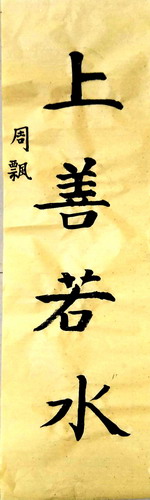 上善若水
周飄